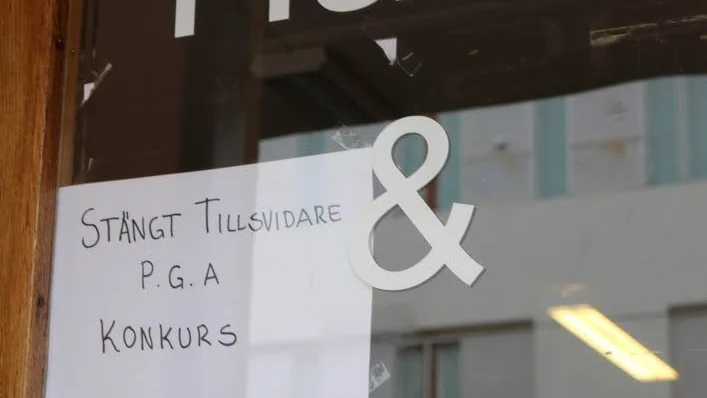 &
STÄNGT TILLSVIDARE
P.G.A
KONKURS